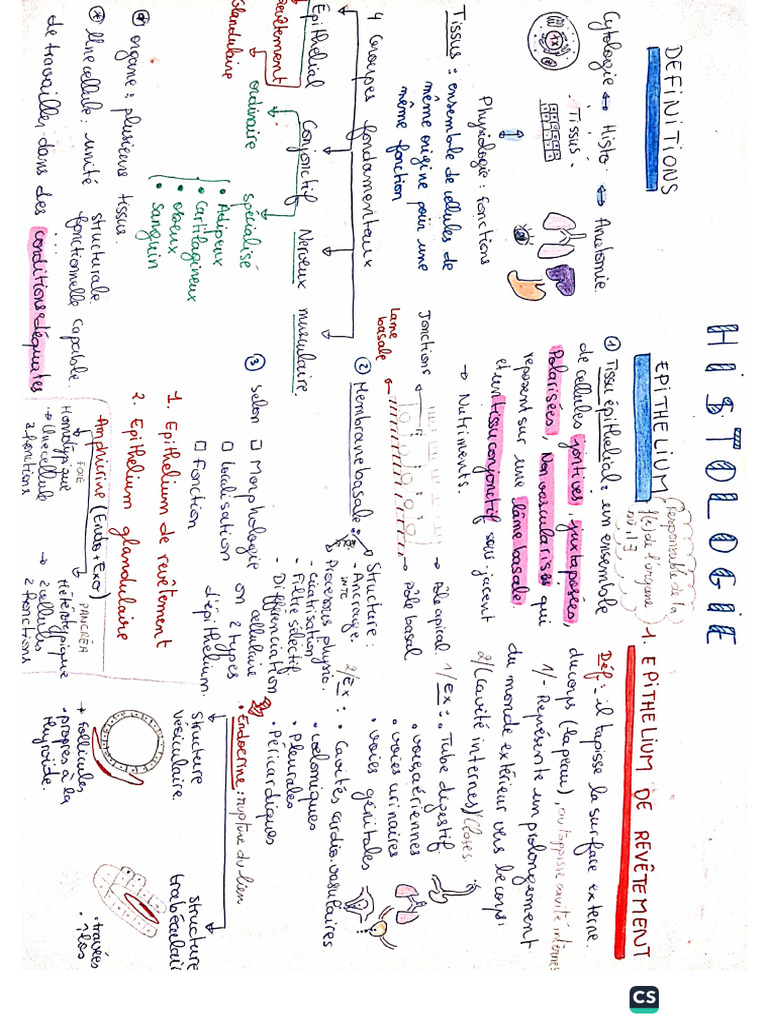 HISTOLOGIE
DEFINITIONS
Cytologie ↔ Histo. ↔ Anatomie.
. Tissus.
Physiologie : fonctions
Tissus : ensemble de cellules de
même origine pour une
même fonction
4 Groupes fondamentaux
Epithélial Conjonctif Nerveux musculaire.
revêtement
Glandulaire
ordinaire
spécialisé
• Adipeux
• Cartilagineux
• osseux
• sanguin
* organe : plusieurs tissus.
* Une cellule : unité structurale
fonctionnelle capable
de travailler dans des conditions adéquates
EPITHELIUM
(Responsable de la
f(c) de l'organe
① Tissu épithélial : un ensemble
de cellules jointives, juxtaposées,
Polarisées, Non vascularisées qui
reposent sur une lâme basale.
et un tissu conjonctif sous-jacent
→ Nutriments.
Jonctions
Lame
basale
→ pôle apical
→ pôle basal
② Membrane basale :
→ Structure :
- Ancrage.
> Processus physio.
- cicatrisation
- Filtre sélectif.
- Différenciation
cellulaire
③ selon
□ Morphologie
□ localisation
□ Fonction
on 2 types
d'épithelium.
1. Epithelium de revêtement
2. Epithelium glandulaire
Amphicrine (Endo + Exo)
FOIE
Homotypique
→ Une cellule
2 fonctions
PANCREA
Hétérotypique
→ 2 cellules
2 fonctions
1. EPITHELIUM DE REVÊTEMENT
Déf : il tapisse la surface externe
du corps (la peau), ou tappisse cavité internes
1/- Représente un prolongement
du monde extérieur vers le corps :
2/(Cavité internes)/closes.
1/ Ex : • Tube digestif.
• voies aériennes
• voies urinaires
• voies génitales
2/ Ex : • Cavités cardio vasculaires
• cœlomiques
• Pleurales
• Péricardiques
• Endocrine : rupture du lien
structure
vesiculaire
→ follicules
• propres à la
thyroïde.
structure
trabéculaire
. travées
. îlots
CS